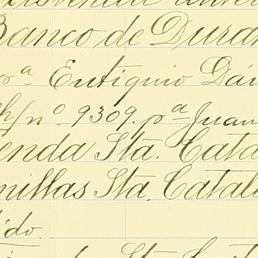 Banco de Duran
r.ª Eutiquio Dá
ch/ n.º 9309. p.ª Juan
enda Sta. Cata
nillas Sta. Catal
ido.